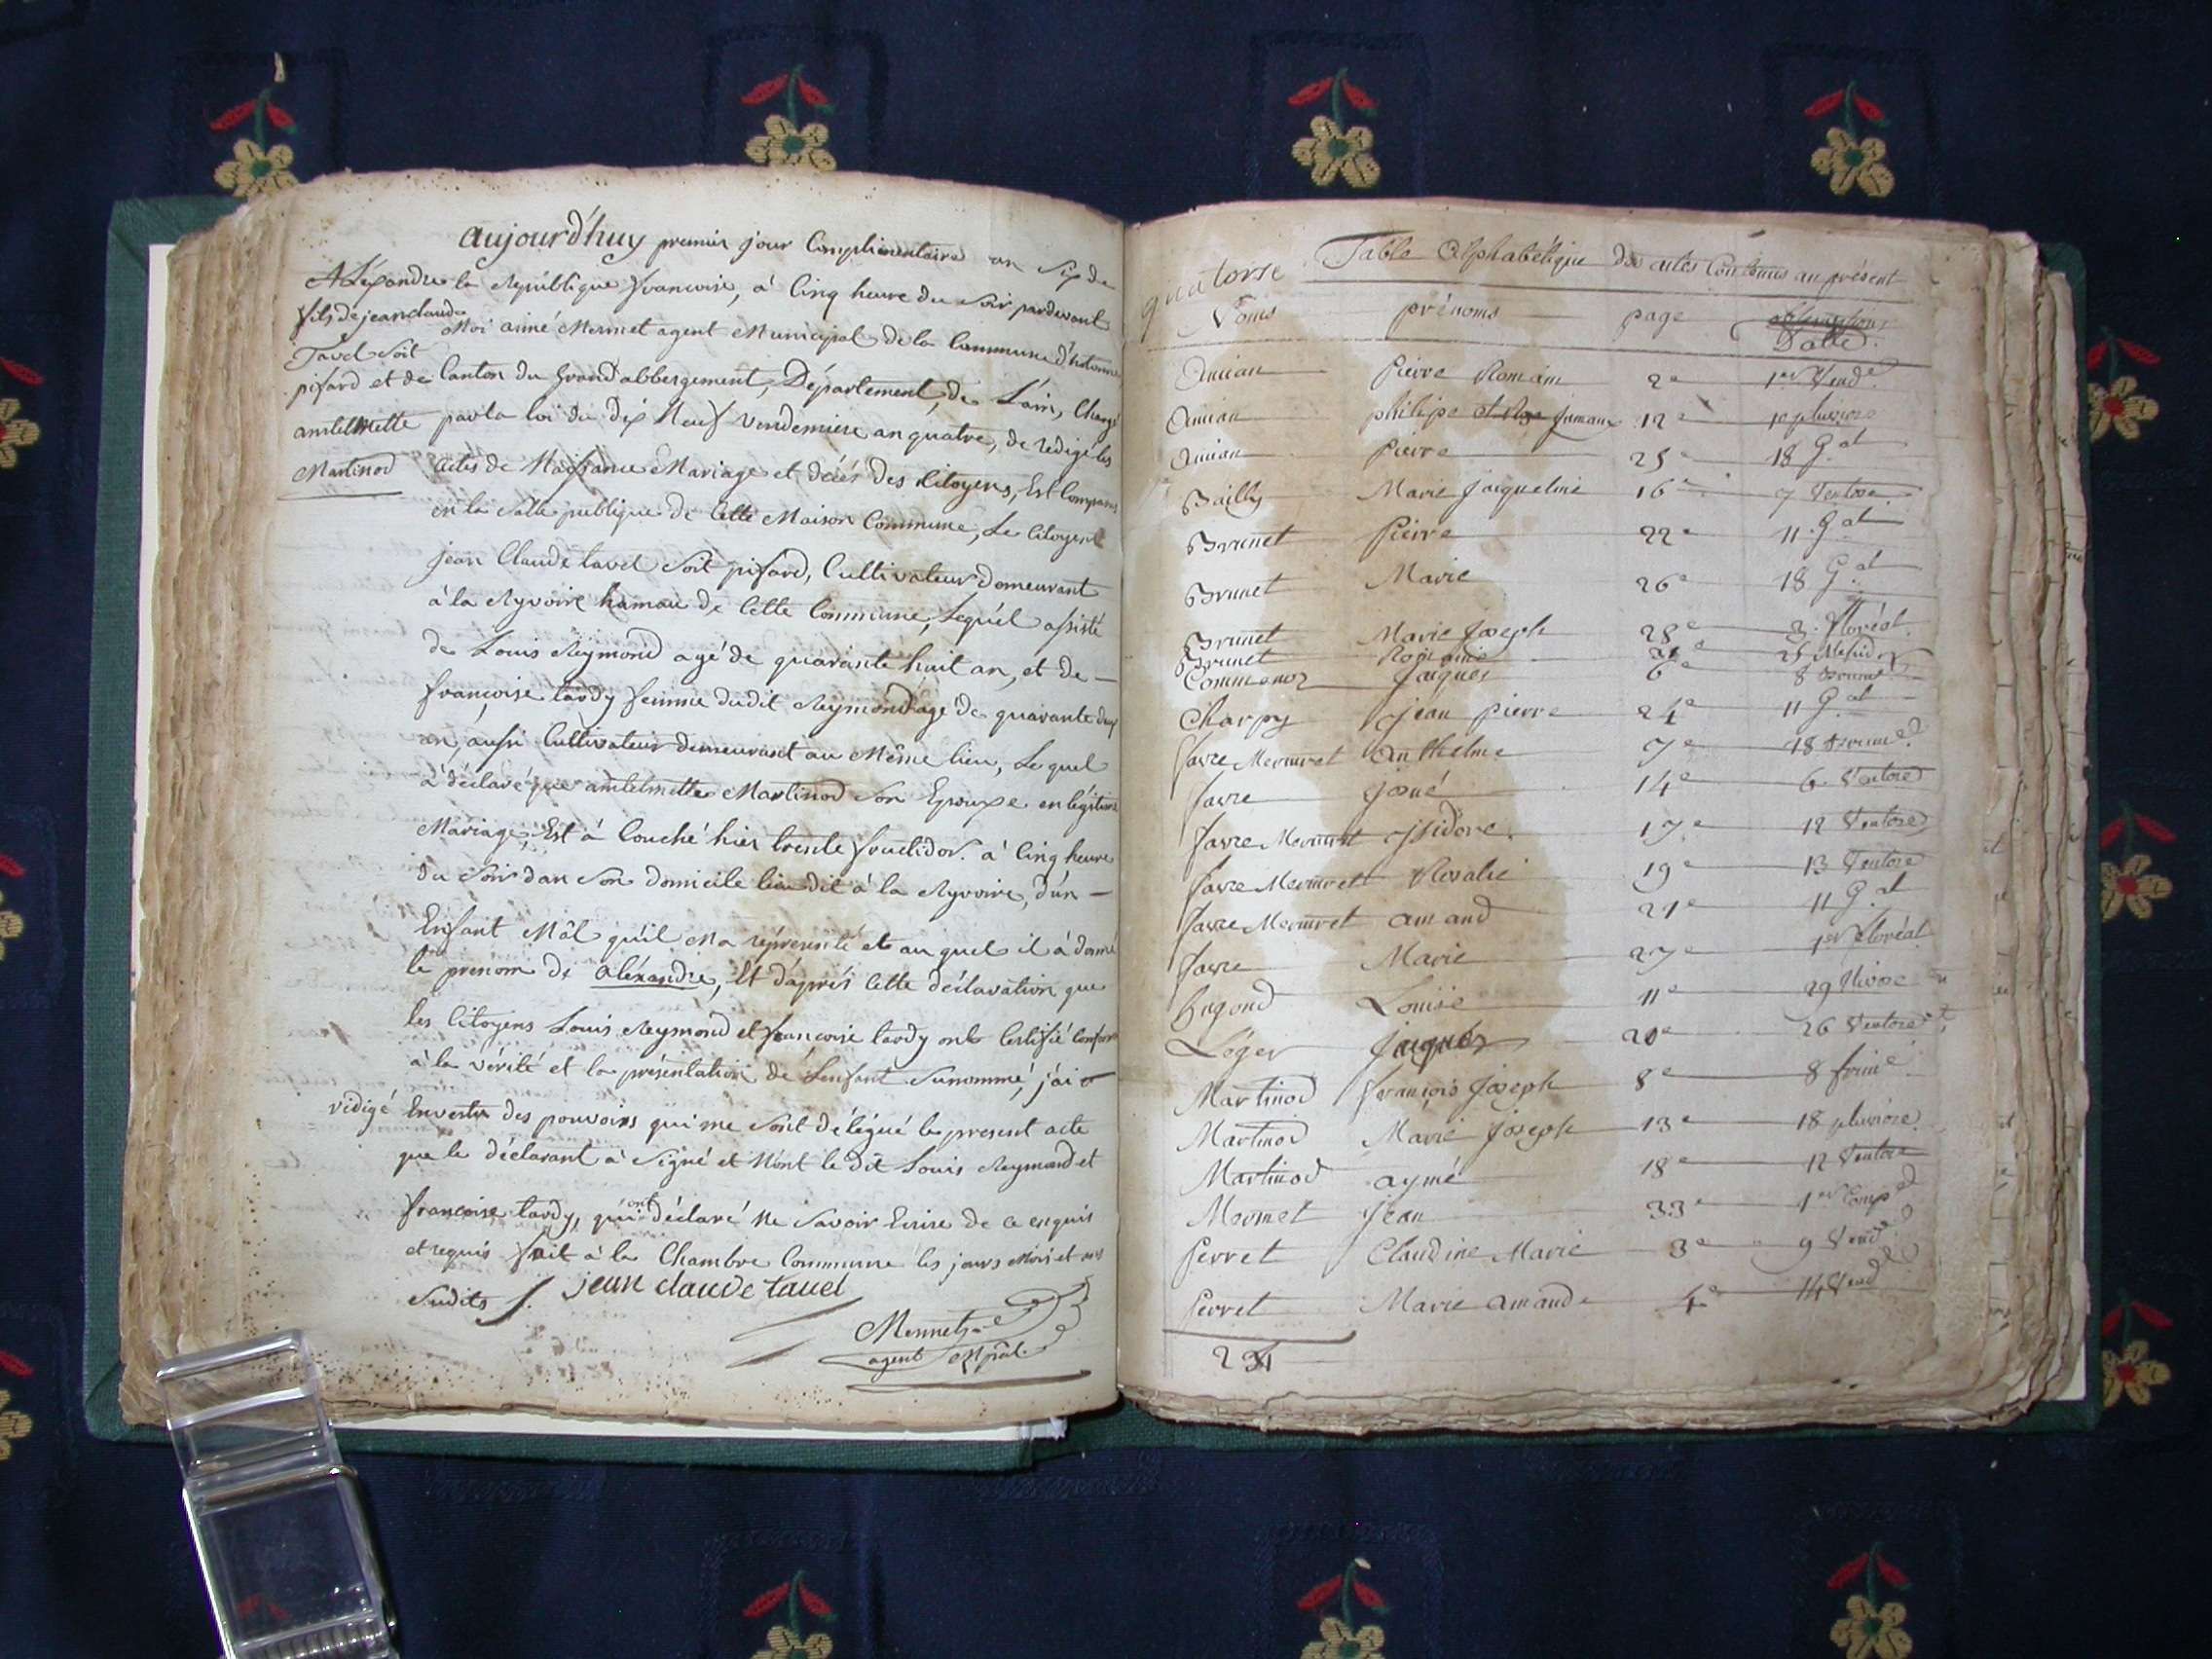 aujourd'huy premier jour Complimentaire an Six de
la République francoise, à Cinq heure du Soir pardevant
Moi aimé Mermet agent Municipal de la Commune d'hotonne
Canton du Grand abbergement, Département, de Lain, Chargé
par la loi du dix Neuf vendemiere an quatre, de redigé les
actes de Naissance Mariage et décés des Citoyens, Est Comparus
en la Salle publique de Cette Maison Commune, Le Citoyent
jean Claude tavel Soit pifard, Cultivateur domeurant
à la Ryvoire hamau de Cette Commune, Lequel assisté
de Louis Reymond agé de quarante huit an, et de
francoise tardy femme dudit Reymond agé de quarante deux
an, aussi Cultivateur demeurant au Même lieu, Le quel
à déclaré que antelmette Martinod Son Epouxe en légitime
Mariage, Est à Couché hier trente fructidor. à Cinq heure
du Soir dan Son domicile lieu dit à la Ryvoire, d'un
Enfant Mâl qu'il Ma représenté et au quel il à donné
le prenom de alexandre, Et d'après Cette déclaration que
les Citoyens Louis Reymond et francoise tardy ont Certifié Conforme
à la vérité et la présentation de L'enfant Sunommé, j'ai
redigé Envertu des pouvoirs qui me Sont délégué le present acte
que le déclarant à Signé et Nont le dit Louis Reymond et
francoise tardy, qui ont déclaré Ne Savoir Ecrire de ce enquis
et requis fait à la Chambre Commune les jours Mois et an
Sudits
jean claude tavel
Mermet
agent Mpal.
Aléxandre
fils de jean claude
Tavel Soit
pifard et de
antelmette
Martinod
quatorse
Table Alphabétique des actes Contenus au présent
Noms prénoms page Datte
Amian Pierre Romain 2e 1er Vend.e
Amian philipe jumaux 12e 10 pluviose
Amian Pierre 25e 18 G.al
Bailly Marie Jacqueline 16e 7 Ventose
Brunet Pierre 22e 11 G.al
Brunet Marie 26e 18 G.al
Brunet Marie Joseph 28e 3 floréal
Brunet 25 Messid
Jaques 6e 8 Brum
Charpy jean pierre 24e 11 G.al
favre Mermet Anthelme 7e 18 Brum.e
favre josué 14e 6 Ventose
favre Mermet isidore 17e 12 Ventose
favre Mermet Rosalie 19e 13 Ventose
favre Mermet amand 21e 11 G.al
favre Marie 27e 1er floréal
Hugond Louise 11e 29 Nivose
Léger Jaques 20e 26 Ventose
Martinod francois Joseph 8e 8 frim.e
Martinod Marie Joseph 13e 18 pluviose
Martinod aymé 18e 12 Ventose
Mermet Jean 33e 1er Comp
Perret Claudine Marie 3e 9 Vend
Perret Marie amande 4e 14 Vend